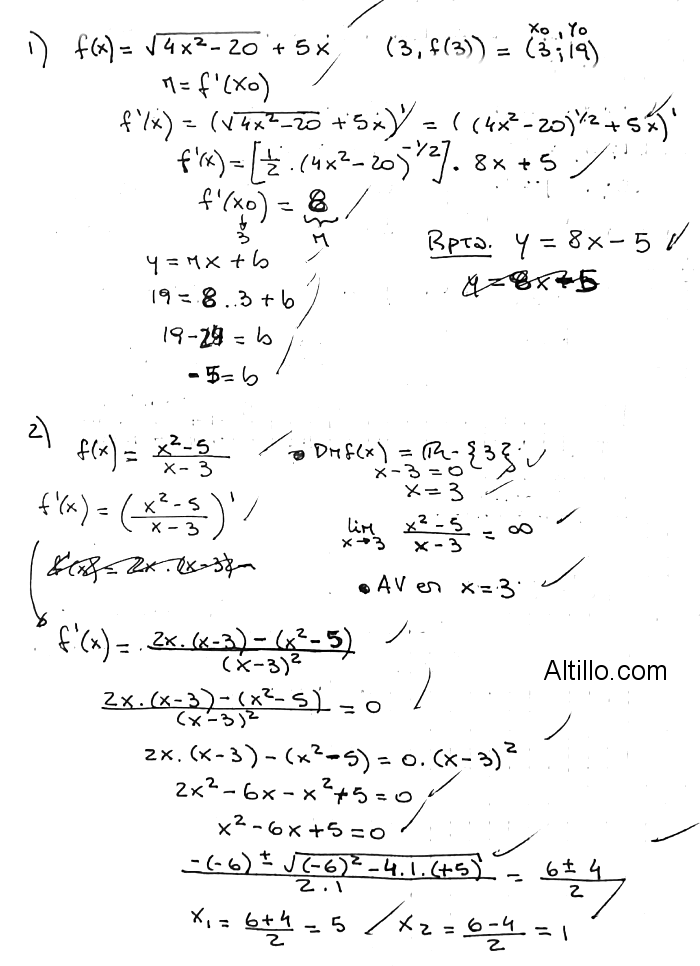 1) f(x) = √(4x² - 20) + 5x (3, f(3)) = (3; 19) x₀, y₀
m = f'(x₀)
f'(x) = (√(4x² - 20) + 5x)' = ((4x² - 20)^1/2 + 5x)'
f'(x) = [1/2 . (4x² - 20)^-1/2] . 8x + 5
f'(x₀) = 8
3 m
y = mx + b
Rpta. y = 8x - 5
19 = 8 . 3 + b
19 - 24 = b
-5 = b
2) f(x) = (x² - 5)/(x - 3)
• Dm f(x) = R - {3}
x - 3 = 0
x = 3
f'(x) = ((x² - 5)/(x - 3))'
lim x→3 (x² - 5)/(x - 3) = ∞
• AV en x = 3
f'(x) = (2x . (x - 3) - (x² - 5))/(x - 3)²
Altillo.com
(2x . (x - 3) - (x² - 5))/(x - 3)² = 0
2x . (x - 3) - (x² - 5) = 0 . (x - 3)²
2x² - 6x - x² + 5 = 0
x² - 6x + 5 = 0
(-(-6) ± √((-6)² - 4 . 1 . (+5)))/(2 . 1) = (6 ± 4)/2
x₁ = (6 + 4)/2 = 5 x₂ = (6 - 4)/2 = 1